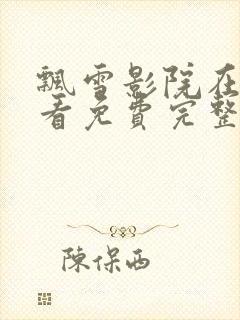 飄雪影院在
看免費完整
陳保西